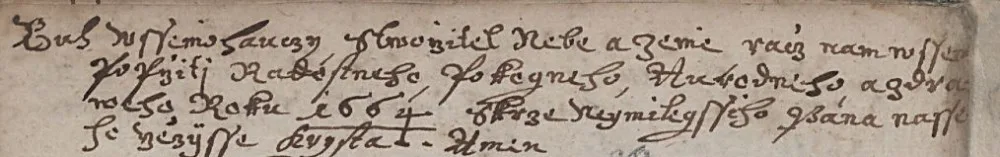 Buh wssemohauczy Stworzitel Nebe a Zeme racz nam wssem
Popržiti Radostneho, Pokogneho, Aurodneho a zdra
weho Roku 1664 Skrze Neymilegssiho Pána nasse
ho Gežjsse Krysta. Amen